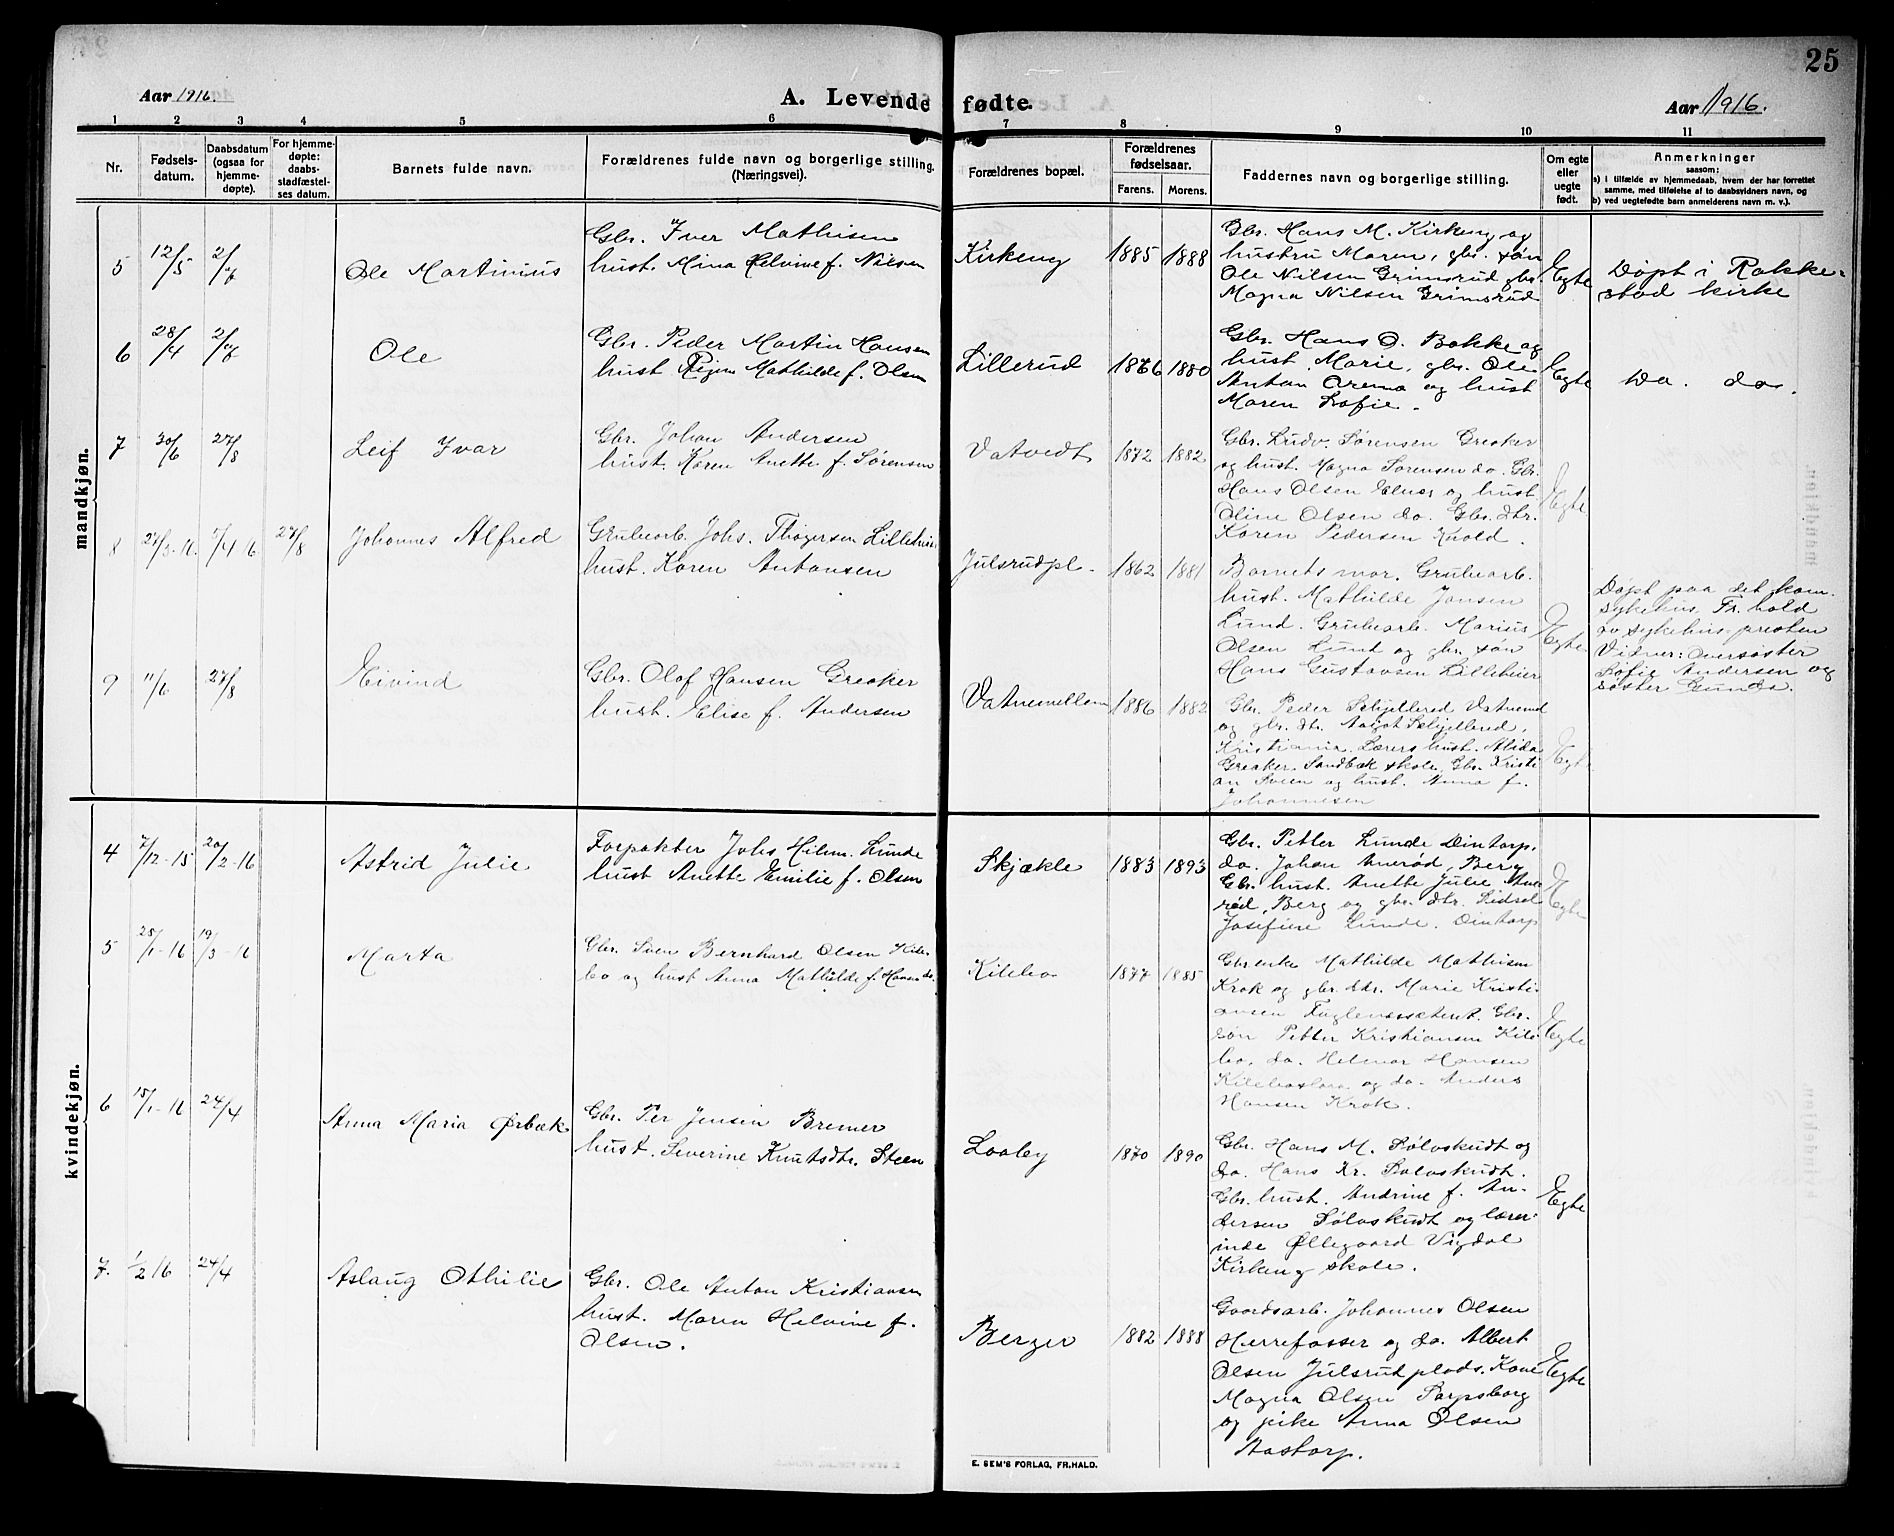 25
Aar 1916.
A. Levende fødte.
Aar 1916.
1 2 3 4 5 6 7 8 9 10 11
Nr.
Fødsels-
datum.
Daabsdatum
(ogsaa for
hjemme-
døpte).
For hjemme-
døpte:
daabs-
stadfæstel-
ses datum.
Barnets fulde navn.
Forældrenes fulde navn og borgerlige stilling.
(Næringsvei).
Forældrenes bopæl.
Forældrenes
fødselsaar.
Farens. Morens.
Faddernes navn og borgerlige stilling.
Om egte
eller
uegte
født.
Anmerkninger
saasom:
a) i tilfælde av hjemmedaab, hvem der har forrettet
samme, med tilføielse af to daabsvidners navn, og
b) ved uegtefødte barn anmelderens navn m. v.).
mandkjøn.
5 12/5 2/7 Ole Martinius
Gbr. Iver Mathisen
hust. Mina Helvine f. Nilsen
Kirkeng 1885 1888
Gbr. Hans M. Kirkeng og
hustru Maren, gbr. søn
Ole Nilsen Grimsrud gbr.
Magna Nilsen Grimsrud
Egte
Døpt i Rakke-
stad kirke
6 28/4 Ole
Gbr. Peder Martin Hansen
hust. Regine Mathilde f. Olsen
Lillerud 1876 1880
Gbr. Hans O. Bakke og
hust. Marie, gbr. Ole
Anton og hust
Maren Sofie.
Egte
Do. do.
7 30/6 27/8 Leif Ivar
Gbr. Johan Andersen
hust. Karen Anette f. Sørensen
Vatvedt 1872 1882
Gbr. Ludv. Sørensen Greaker
og hust. Magna Sørensen do. Gbr.
Hans Olsen og hust
Oline Olsen do. Gbr. dtr.
Karen Pedersen
Egte
8 27/3-16 7/4 16 27/8 Johannes Alfred
Grubearb. Johs. Thøgersen Lilleheier
hust. Karen Antonsen
Julsrudpl. 1862 1881
Barnets mor. Grubearb.
hust. Mathilde Jansen
Lund. Grubearb. Marius
Olsen Lund og gbr. søn
Hans Gustavsen Lilleheier
Egte
Døpt paa det kom.
sykehus Fr.hald
av sykehus-presten
Vidner: Oversøster
Sofie Andersen og
søster Gunda.
9 11/6 27/8 Eivind
Gbr. Olaf Hansen Greaker
hust. Elise f. Andersen
Vatnemellem 1886 1882
Gbr. Peder Skjellerød Vatnemel
og gbr. dtr. Aagot Skjellerød,
Kristiania. Lærers hust. Alida
Greaker. Sandbæk skole, Gbr. Kristi-
an Sveen og hust. Anna f.
Johannesen
Egte
kvindekjøn.
4 7/12-15 20/2-16 Astrid Julie
Forpakter Johs Hilm. Lunde
hust Anette Emilie f. Olsen
Skjækle 1883 1893
Gbr. Petter Lunde Dintorp.
do. Johan Anerød, Berg
Gbr. hust. Anette Julie Ane-
rød, Berg og gbr. dtr. Sidsel
Josefine Lunde. Dintorp
Egte
5 25/1-16 19/3-16 Marta
Gbr. Sven Bernhard Olsen Kile-
bo og hust Anna Mathilde f. Hansen do.
Kilebo 1877 1885
Gbr.enke Mathilde Mathisen
Krok og gbr. dtr. Marie Kristi-
ansen Fuglenessæteret. Gbr.
søn Petter Kristiansen Kile-
bo, do. Helmar Hansen
og do. Anders
Hansen Krok.
Egte
6 15/1-16 24/4 Anna Maria Ørbæk
Gbr. Per Jensen Bremer
hust. Severine Knutsdtr. Steen
Looby 1870 1890
Gbr. Hans M. Sølvskudt og
do. Hans Kr. Sølvskudt.
Gbr. hust. Andrine f. An-
dersen Sølvskudt og lærer-
inde Øllegaard Vigdal
Kirkeng skole.
Egte
7. 1/2 16 24/4 Aslaug Othilie
Gbr. Ole Anton Kristiansen
hust. Maren Helvine f.
Olsen.
Berger 1882 1888
Gaardsarb. Johannes Olsen
Herrefosser og do. Albert
Olsen Julsrut plads. Kone
Magna Olsen Sarpsborg
og pike Anna Olsen
Aastorp.
Egte
E. SEM'S FORLAG, FR.HALD.